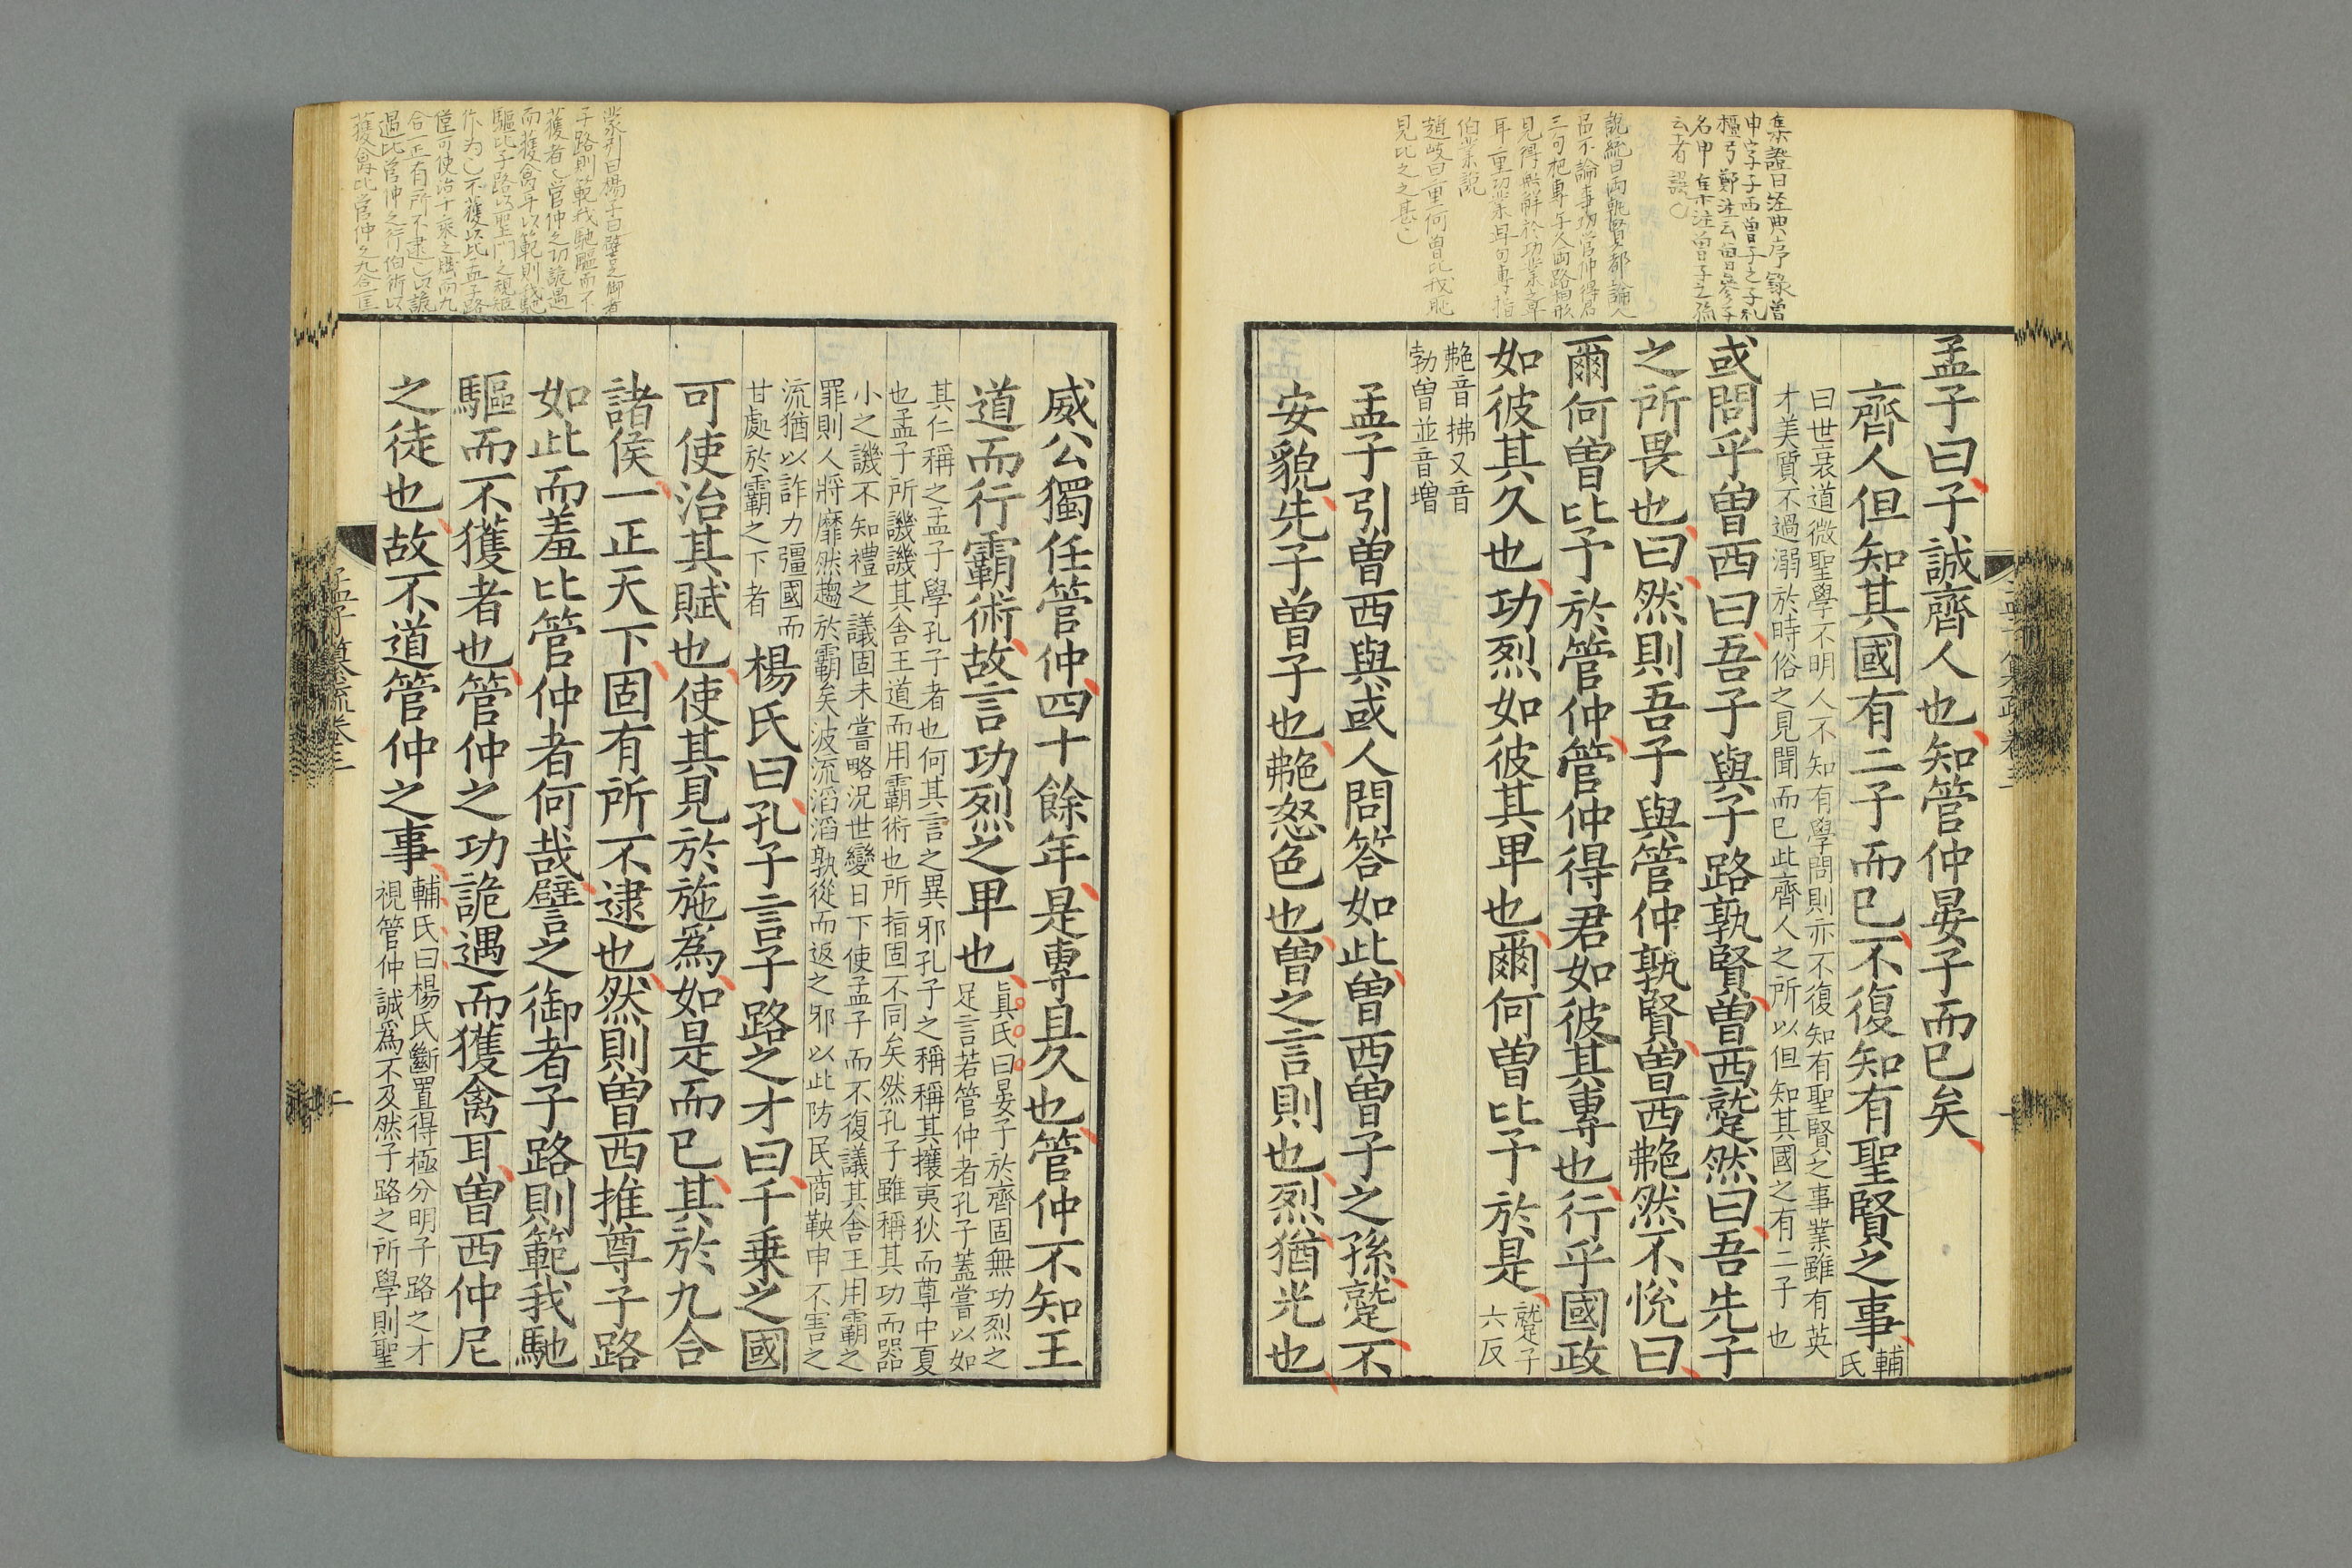 孟子曰子誠齊人也知管仲晏子而已矣
齊人但知其國有二子而已不復知有聖賢之事輔氏
曰世衰道微聖學不明人不知有學問則亦不復知有聖賢之事業雖有英
才美質不過溺於時俗之見聞而已此齊人之所以但知其國之有二子也
或問乎曾西曰吾子與子路孰賢曾西蹵然曰吾先子
之所畏也曰然則吾子與管仲孰賢曾西艴然不悅曰
爾何曾比予於管仲管仲得君如彼其專也行乎國政
如彼其久也功烈如彼其卑也爾何曾比予於是蹵子六反
艴音拂又音
勃曾並音增
孟子引曾西與或人問答如此曾西曾子之孫蹵不
安貌先子曾子也艴怒色也曾之言則也烈猶光也
集證曰經典序錄曾
申字子西曾子之子礼
檀弓鄭注云曾參子
名申集注曾子之孫
云者誤
說統曰兩孰賢都論人
品不論事功管仲得君
耳重功業耳句專指
伯業說
趙岐曰重何曾比我恥
見比之之甚也
威公獨任管仲四十餘年是專且久也管仲不知王
道而行霸術故言功烈之卑也眞氏曰晏子於齊固無功烈之
足言若管仲者孔子蓋嘗以如
其仁稱之孟子學孔子者也何其言之異邪孔子之稱稱其攘夷狄而尊中夏
也孟子所譏譏其舍王道而用霸術也所指固不同矣然孔子雖稱其功而器
小之譏不知禮之議固未嘗略況世變日下使孟子而不復議其舍王用霸之
罪則人將靡然趨於霸矣波流滔滔孰從而返之邪以此防民商鞅申不害之
流猶以詐力彊國而
甘處於霸之下者
楊氏曰孔子言子路之才曰千乗之國
可使治其賦也使其見於施爲如是而已其於九合
諸侯一正天下固有所不逮也然則曾西推尊子路
如此而羞比管仲者何哉譬之御者子路則範我馳
驅而不獲者也管仲之功詭遇而獲禽耳曾西仲尼
之徒也故不道管仲之事輔氏曰楊氏斷置得極分明子路之才
視管仲誠爲不及然子路之所學則聖
蒙引曰楊子曰譬之御者
子路則範我馳驅而不
獲者也管仲之功詭遇
而獲禽耳以範則我馳
驅比子路以聖門之規矩
作为也不獲以比孟子路
僅可使治千乘之賦而九
合一正有所不逮也以詭
遇比管仲之行伯術以
獲禽比管仲之九合一匡
孟子集疏卷三
二